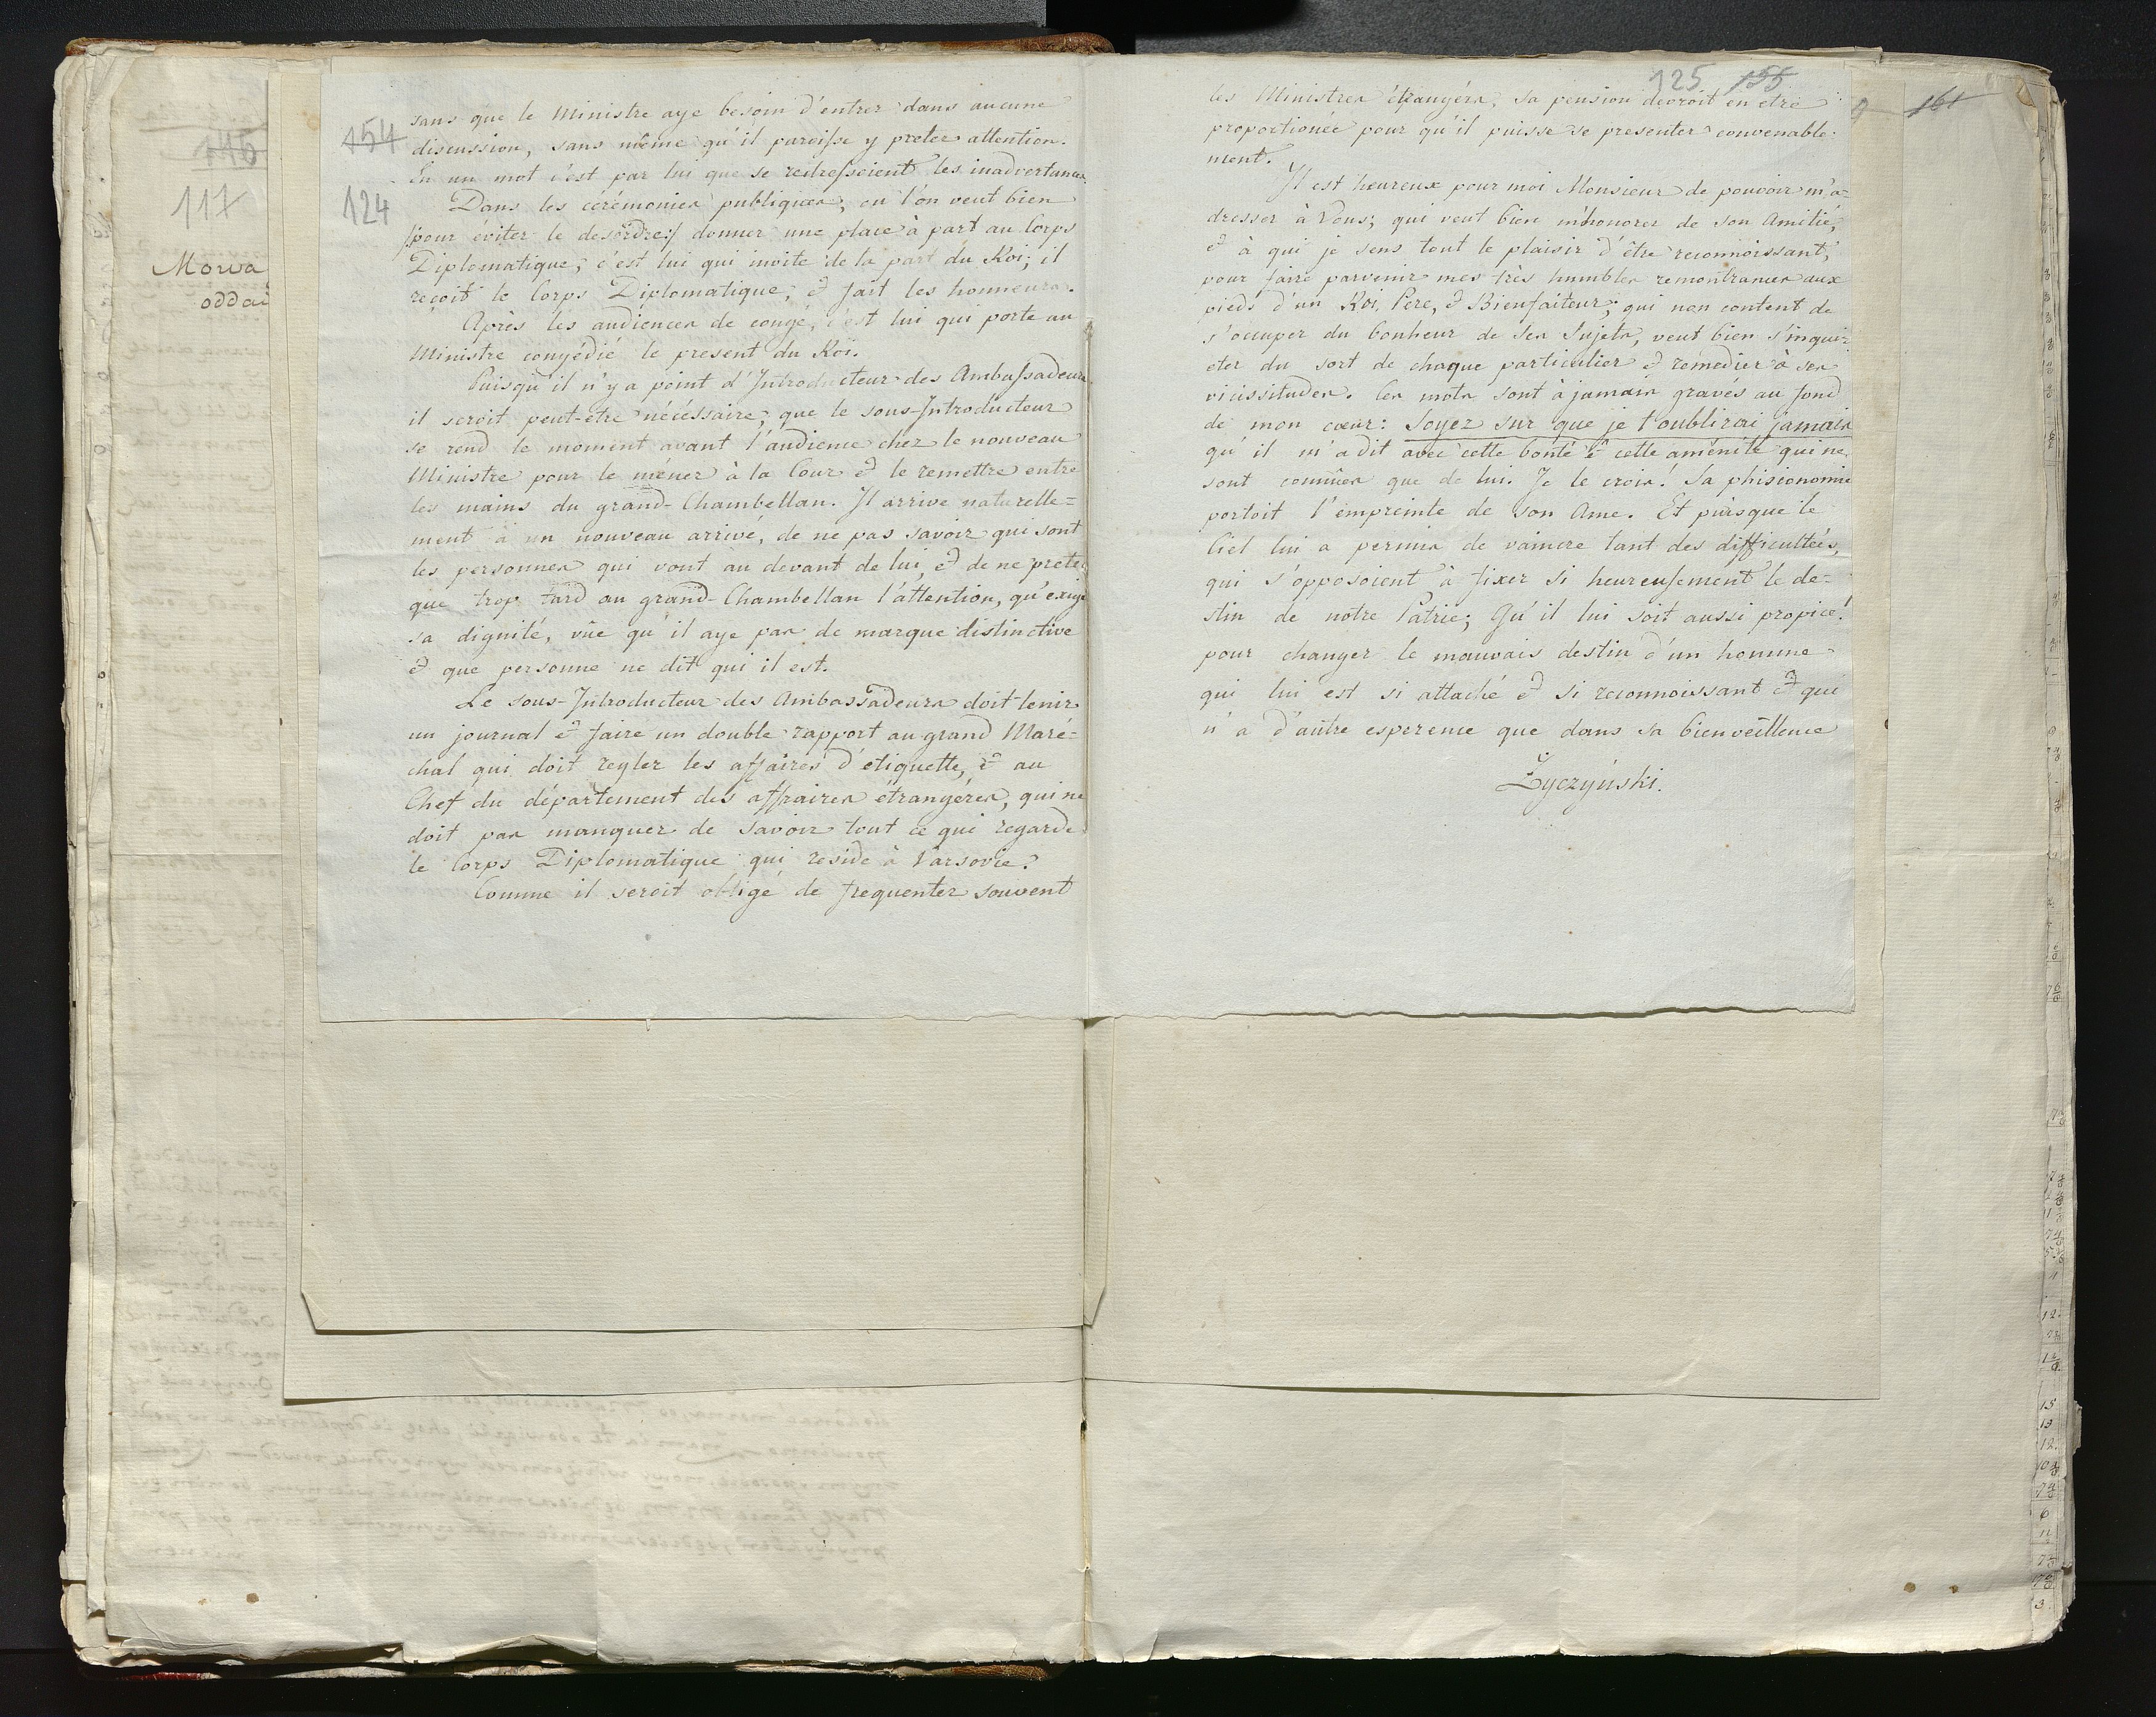 146
117
Mowa
154
124
sans que le Ministre aye besoin d'entrer dans aucune
discussion, sans même qu'il paroisse y preter attention.
En un mot c'est par lui que se redresseient les inadvertances
Dans les cérémonies publiques, ou l'on veut bien
/:pour éviter le desordre:/ donner une place à part au Corps
Diplomatique, c'est lui qui invite de la part du Roi; il
reçoit le Corps Diplomatique, et fait les honneurs.
Après les audiences de congé, c'est lui qui porte au
Ministre congédié le present du Roi.
Puisqu'il n'y a point d'Introducteur des Ambassadeurs
il seroit peut-etre nécéssaire, que le sous-Introducteur
se rend le moment avant l'audience chez le nouveau
Ministre pour le méner à la Cour et le remettre entre
les mains du grand-Chambellan. Il arrive naturelle=
ment à un nouveau arrivé, de ne pas savoir qui sont
les personnes qui vont au devant de lui, et de ne preter
que trop tard au grand-Chambellan l'attention, qu'exige
sa dignité, vûe qu'il aye pas de marque distinctive
et que personne ne dit qui il est.
Le sous-Introducteur des Ambassadeurs doit tenir
un journal et faire un double rapport au grand Maré=
chal qui doit regler les affaires d'étiquette, et au
Chef du département des affraires étrangéres, qui ne
doit pas manquer de savoir tout ce qui regarde
le Corps Diplomatique qui reside à Varsovie?
Comme il seroit obligé de frequenter souvent
125 155
161
les Ministres étrangérs, sa pension devroit en etre
proportionée pour qu'il puisse se presenter convenable=
ment.
Il est heureux pour moi Monsieur de pouvoir m'a=
dresser à Vous; qui veut bien m'honorer de son Amitié,
et à qui je sens tout le plaisir d'être reconnoissant,
pour faire parvenir mes très humbles remontrances aux
pieds d'un Roi, Pere, et Bienfaiteur; qui non content de
s'occuper du bonheur de ses Sujets, veut bien s'inquié
eter du sort de chaque particulier et remedier à ses
vicissitudes. Ces mots sont à jamais gravés au fond
de mon cœur: Soyez sur que je t'oublirai jamais
qu'il m'a dit avec cette bonté et cette aménité qui ne
sont connûes que de lui. Je le crois! Sa phisionomie
portoit l'empreinte de son Ame. Et puisque le
Ciel lui a permis de vaincre tant des difficultées,
qui s'opposoient à fixer si heureusement le de=
stin de notre Patrie; Qu'il lui soit aussi propice!
pour changer le mauvais destin d'un homme
qui lui est si attaché et si reconnoissant et qui
n'a d'autre esperence que dans sa bienveillence
Życzyński.